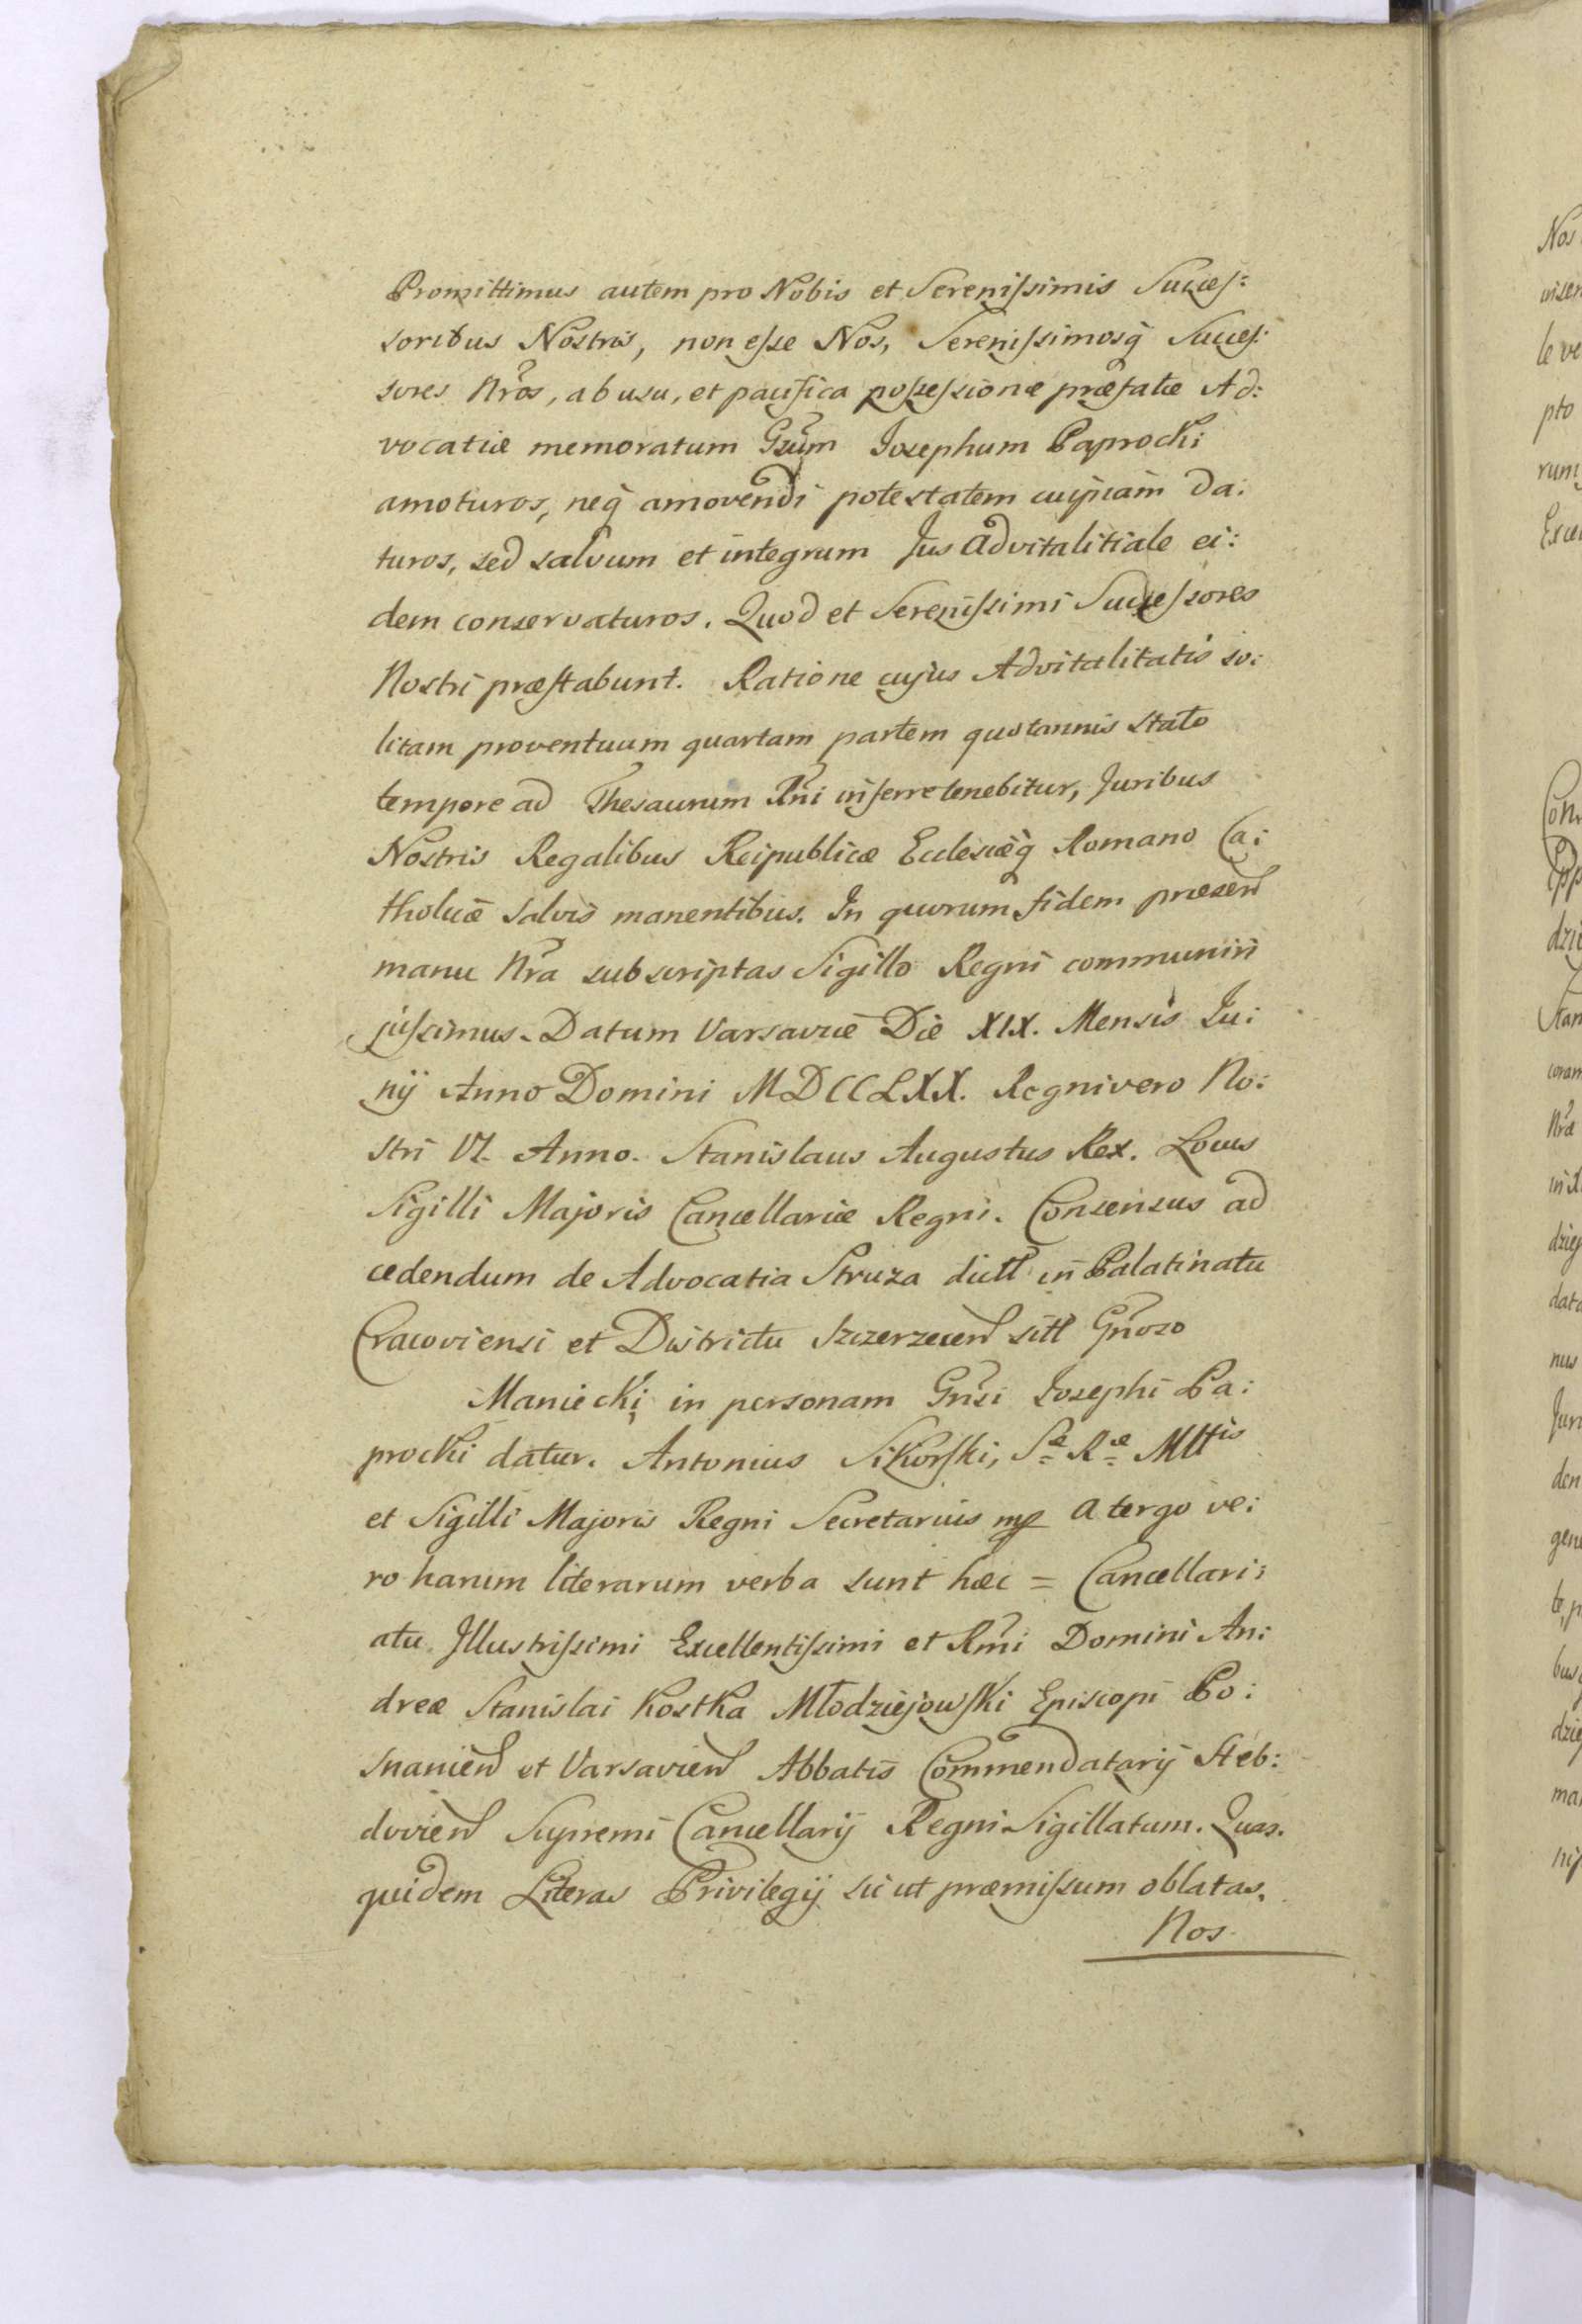 Promittimus autem pro Nobis et Serenissimis Succes:
soribus Nostris, non esse Nos, Serenissimosq̃ Succes:
sores Nr̃os, ab usu, et pacifica possessione præfatæ Ad:
vocatiæ memoratum Gsũm Josephum Paprocki
amoturos, neq̃ amovendi potestatem cuipiam da:
turos, sed salvum et integrum Jus advitalitiale ei:
dem conservaturos. Quod et Serenissimi Successores
Nostri præstabunt. Ratione cujus Advitalitatis so:
litam proventuum quartam partem quotannis stato
tempore ad Thesaurum Rñi inferre tenebitur, Juribus
Nostris Regalibus Reipublicæ Ecclesiæq̃ Romano Ca:
tholicæ salvis manentibus. In quorum fidem præsen
manu Nr̃a subscriptas Sigillo Regni communiri
jussimus. Datum Varsaviæ Die XIX. Mensis Ju:
nij Anno Domini MDCCLXX. Regni vero No:
stri VI. Anno. Stanislaus Augustus Rex. Locus
Sigilli Majoris Cancellariæ Regni. Consensus ad
cedendum de Advocatia Struza dictt in Palatinatu
Cracoviensi et Districtu Szczerzecen sitt Gñoso
Maniecki in personam Gñsi Josephi Pa:
procki datur. Antonius Sikorski, Sæ Ræ Mttis
et Sigilli Majoris Regni Secretarius mp A tergo ve:
ro harum literarum verba sunt hæc = Cancellari:
atu Illustrissimi Excellentissimi et Rm̃i Domini An:
dreæ Stanislai Kostka Młodziejowski Episcopi Po:
snanien et Varsavien Abbatis Commendatarij Heb:
dovien Supremi Cancellarij Regni Sigillatum. Quas.
quidem Literas Privilegij sic ut præmissum oblatas.
Nos